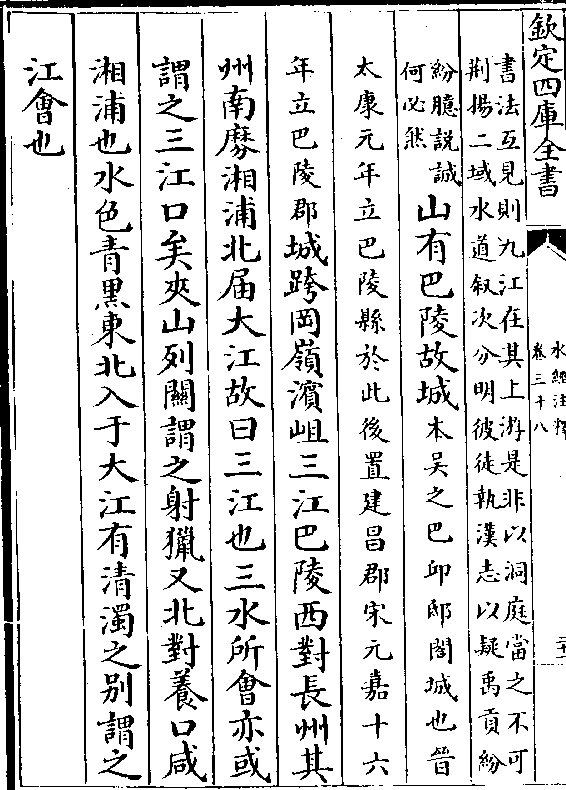 欽定四庫全書
水經注釋
卷三十八
書法互見則九江在其上游是非以洞庭當之不可
荆揚二域水道叙次分明彼徒執漢志以疑禹貢紛
紛臆説誠
何必然
山有巴陵故城本吴之巴卭邸閣城也晉
太康元年立巴陵縣於此後置建昌郡宋元嘉十六
年立巴陵郡城跨岡嶺濱岨三江巴陵西對長州其
州南㢝湘浦北届大江故曰三江也三水所會亦或
謂之三江口矣夾山列關謂之射獵又北對養口咸
湘浦也水色青黑東北入于大江有清濁之别謂之
江會也